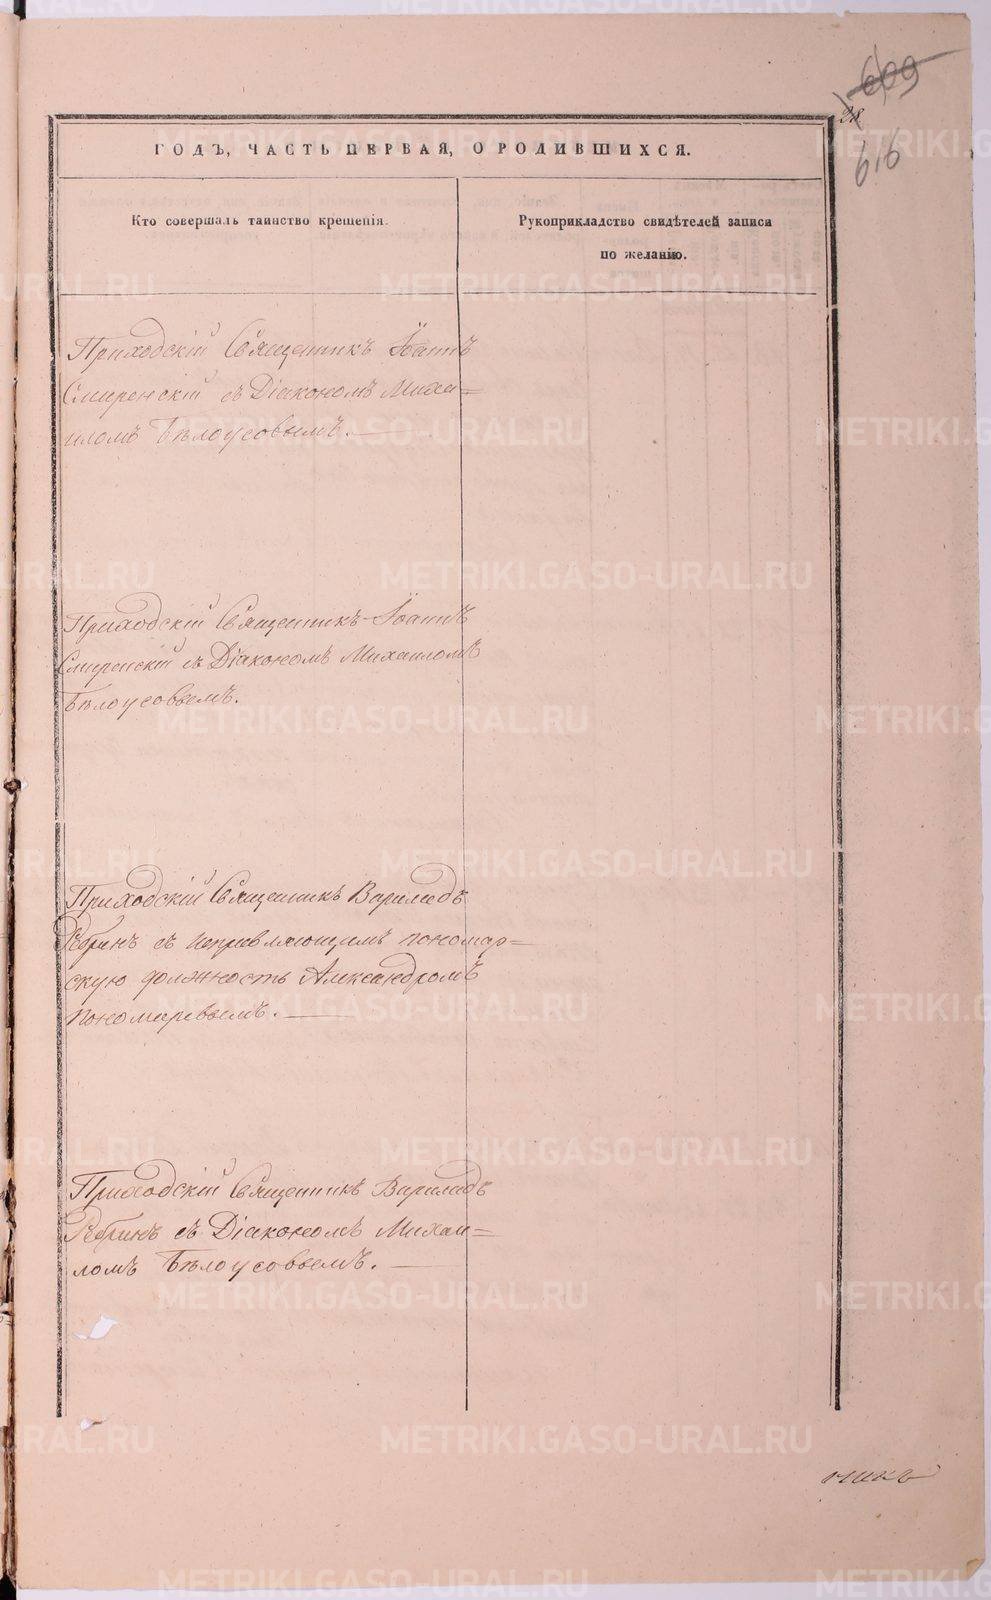 609
28
616
ГОДЪ, ЧАСТЬ ПЕРВАЯ, О РОДИВШИХСЯ.
Кто совершалъ таинство крещенія.
Рукоприкладство свидѣтелей записи
по желанію.
Приходскій Священникъ Іоаннъ
Смиренскій съ Діакономъ Миха=
иломъ Бѣлоусовымъ.
Приходскій Священникъ Іоаннъ
Смиренскій съ Діакономъ Михаиломъ
Бѣлоусовымъ.
Приходскій Священникъ
съ исправляющимъ пономар=
скую должность Александромъ
Пономаревымъ.
Приходскій Священникъ
съ Діакономъ Михаи=
ломъ Бѣлоусовымъ.
METRIKI.GASO-URAL.RU